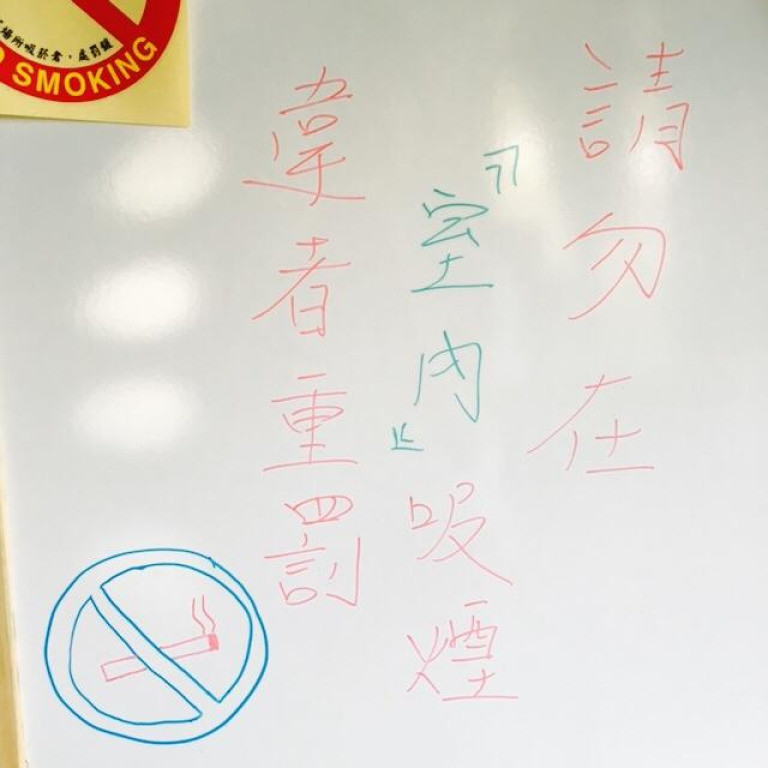 請勿在
『室內』吸煙
違者重罰
場所吸菸者，處罰鍰
SMOKING